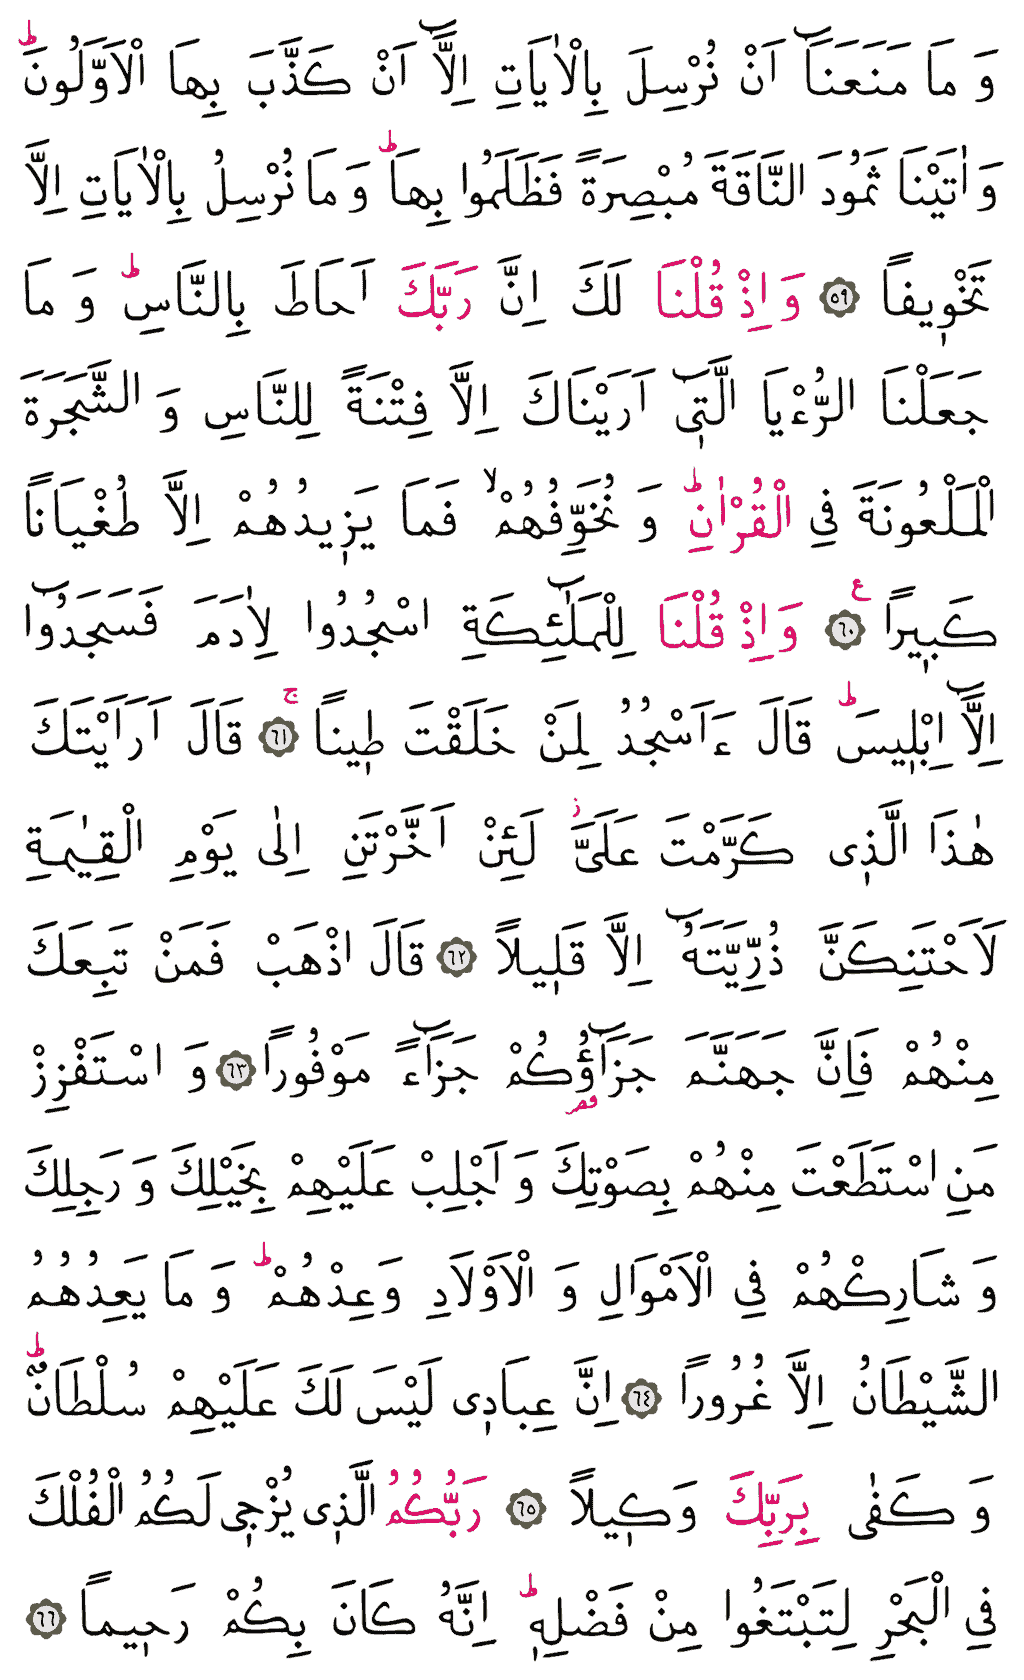 وَ مَا مَنَعَنَٓا اَنْ نُرْسِلَ بِالْاٰيَاتِ اِلَّٓا اَنْ كَذَّبَ بِهَا الْاَوَّلُونَۜ
وَ اٰتَيْنَا ثَمُودَ النَّاقَةَ مُبْصِرَةً فَظَلَمُوا بِهَاۜ وَ مَا نُرْسِلُ بِالْاٰيَاتِ اِلَّا
تَخْو۪يفًا ﴿٥٩﴾ وَ اِذْ قُلْنَا لَكَ اِنَّ رَبَّكَ اَحَاطَ بِالنَّاسِۜ وَ مَا
جَعَلْنَا الرُّءْيَا الَّت۪ٓى اَرَيْنَاكَ اِلَّا فِتْنَةً لِلنَّاسِ وَ الشَّجَرَةَ
الْمَلْعُونَةَ فِى الْقُرْاٰنِۜ وَ نُخَوِّفُهُمْۙ فَمَا يَز۪يدُهُمْ اِلَّا طُغْيَانًا
كَب۪يرًا ﴿٦٠﴾ع وَ اِذْ قُلْنَا لِلْمَلٰٓئِكَةِ اسْجُدُوا لِاٰدَمَ فَسَجَدُٓوا
اِلَّٓا اِبْل۪يسَۜ قَالَ ءَاَسْجُدُ لِمَنْ خَلَقْتَ ط۪ينًا ﴿٦١﴾ۚ قَالَ اَرَاَيْتَكَ
هٰذَا الَّذ۪ى كَرَّمْتَ عَلَىَّۘ لَئِنْ اَخَّرْتَنِ اِلٰى يَوْمِ الْقِيٰمَةِ
لَاَحْتَنِكَنَّ ذُرِّيَّتَهُٓ اِلَّا قَل۪يلًا ﴿٦٢﴾ قَالَ اذْهَبْ فَمَنْ تَبِعَكَ
مِنْهُمْ فَاِنَّ جَهَنَّمَ جَزَٓاؤُ۬كُمْ جَزَٓاءً مَوْفُورًا ﴿٦٣﴾ وَ اسْتَفْزِزْ
مَنِ اسْتَطَعْتَ مِنْهُمْ بِصَوْتِكَ وَ اَجْلِبْ عَلَيْهِمْ بِخَيْلِكَ وَ رَجِلِكَ
وَ شَارِكْهُمْ فِى الْاَمْوَالِ وَ الْاَوْلَادِ وَعِدْهُمْۜ وَ مَا يَعِدُهُمُ
الشَّيْطَانُ اِلَّا غُرُورًا ﴿٦٤﴾ اِنَّ عِبَاد۪ى لَيْسَ لَكَ عَلَيْهِمْ سُلْطَانٌۜ
وَ كَفٰى بِرَبِّكَ وَك۪يلًا ﴿٦٥﴾ رَبُّكُمُ الَّذ۪ى يُزْج۪ى لَكُمُ الْفُلْكَ
فِى الْبَحْرِ لِتَبْتَغُوا مِنْ فَضْلِه۪ۜ اِنَّهُ كَانَ بِكُمْ رَح۪يمًا ﴿٦٦﴾